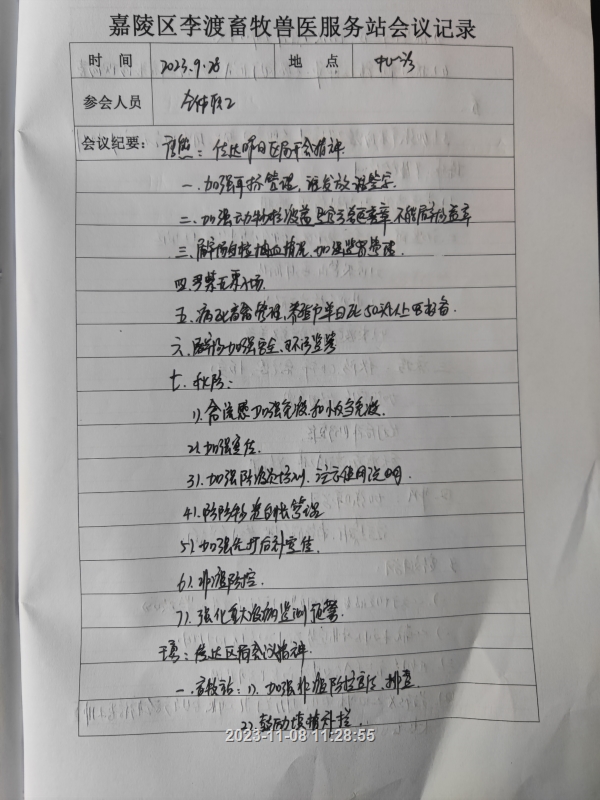 嘉陵区李渡畜牧兽医服务站会议记录
时 间 2023.9.28 地 点 中心站
参会人员 全体职工
会议纪要: 传达昨日区局干会精神
一、加强耳标管理, 谁发放谁签字.
二、加强动物检疫 章, 不能屠场盖章
三、屠宰场自检抽血情况, 加强监督管理.
四、严禁 入场.
五、病死畜禽管理, 养殖户单日死50元以上 报备.
六、屠宰场加强安全、环保监管
七、秋防:
1). 禽流感加强免疫和 免疫.
2). 加强宣传.
3). 加强防疫员培训, 注意使用说明.
4). 防疫物资台账管理
5). 加强先打后补宣传.
6). 非瘟防控.
7). 强化重大疫病监测预警.
: 传达区局会议精神.
一、畜牧站: 1). 加强非瘟防控宣传, 排查
2). 鼓励填槽补栏.
2023-11-08 11:28:55